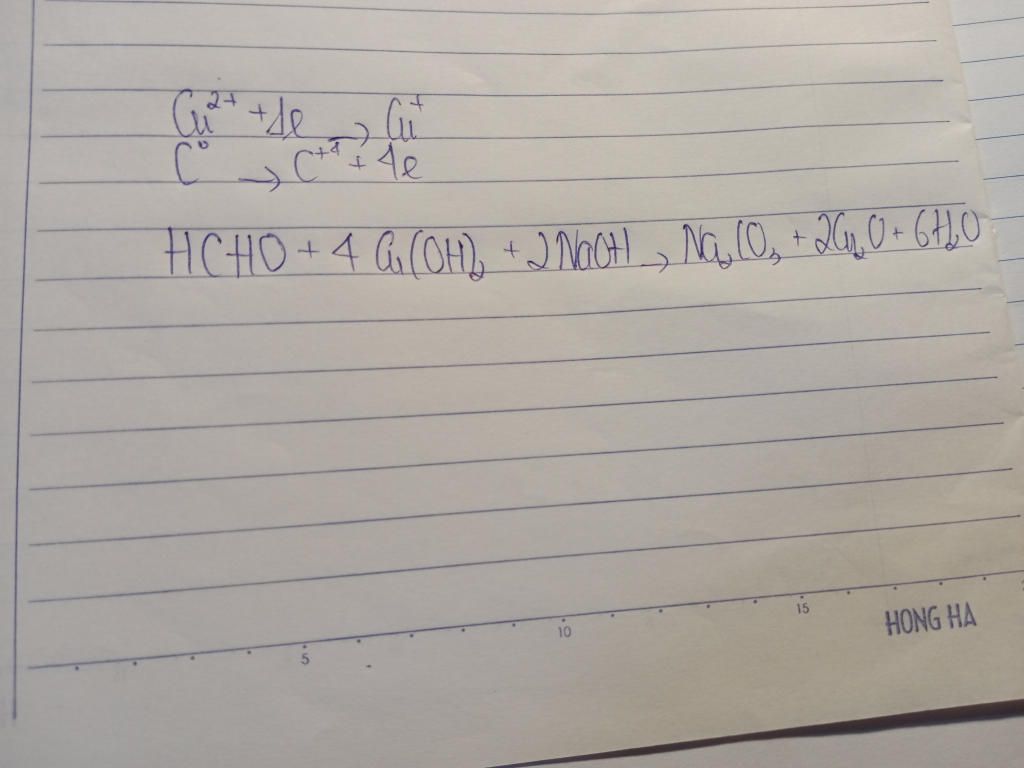 Cu²⁺ + 1e → Cu⁺
C⁰ → C⁺⁴ + 4e
HCHO + 4 Cu(OH)₂ + 2NaOH → Na₂CO₃ + 2Cu₂O + 6H₂O
5 10 15
HONG HA